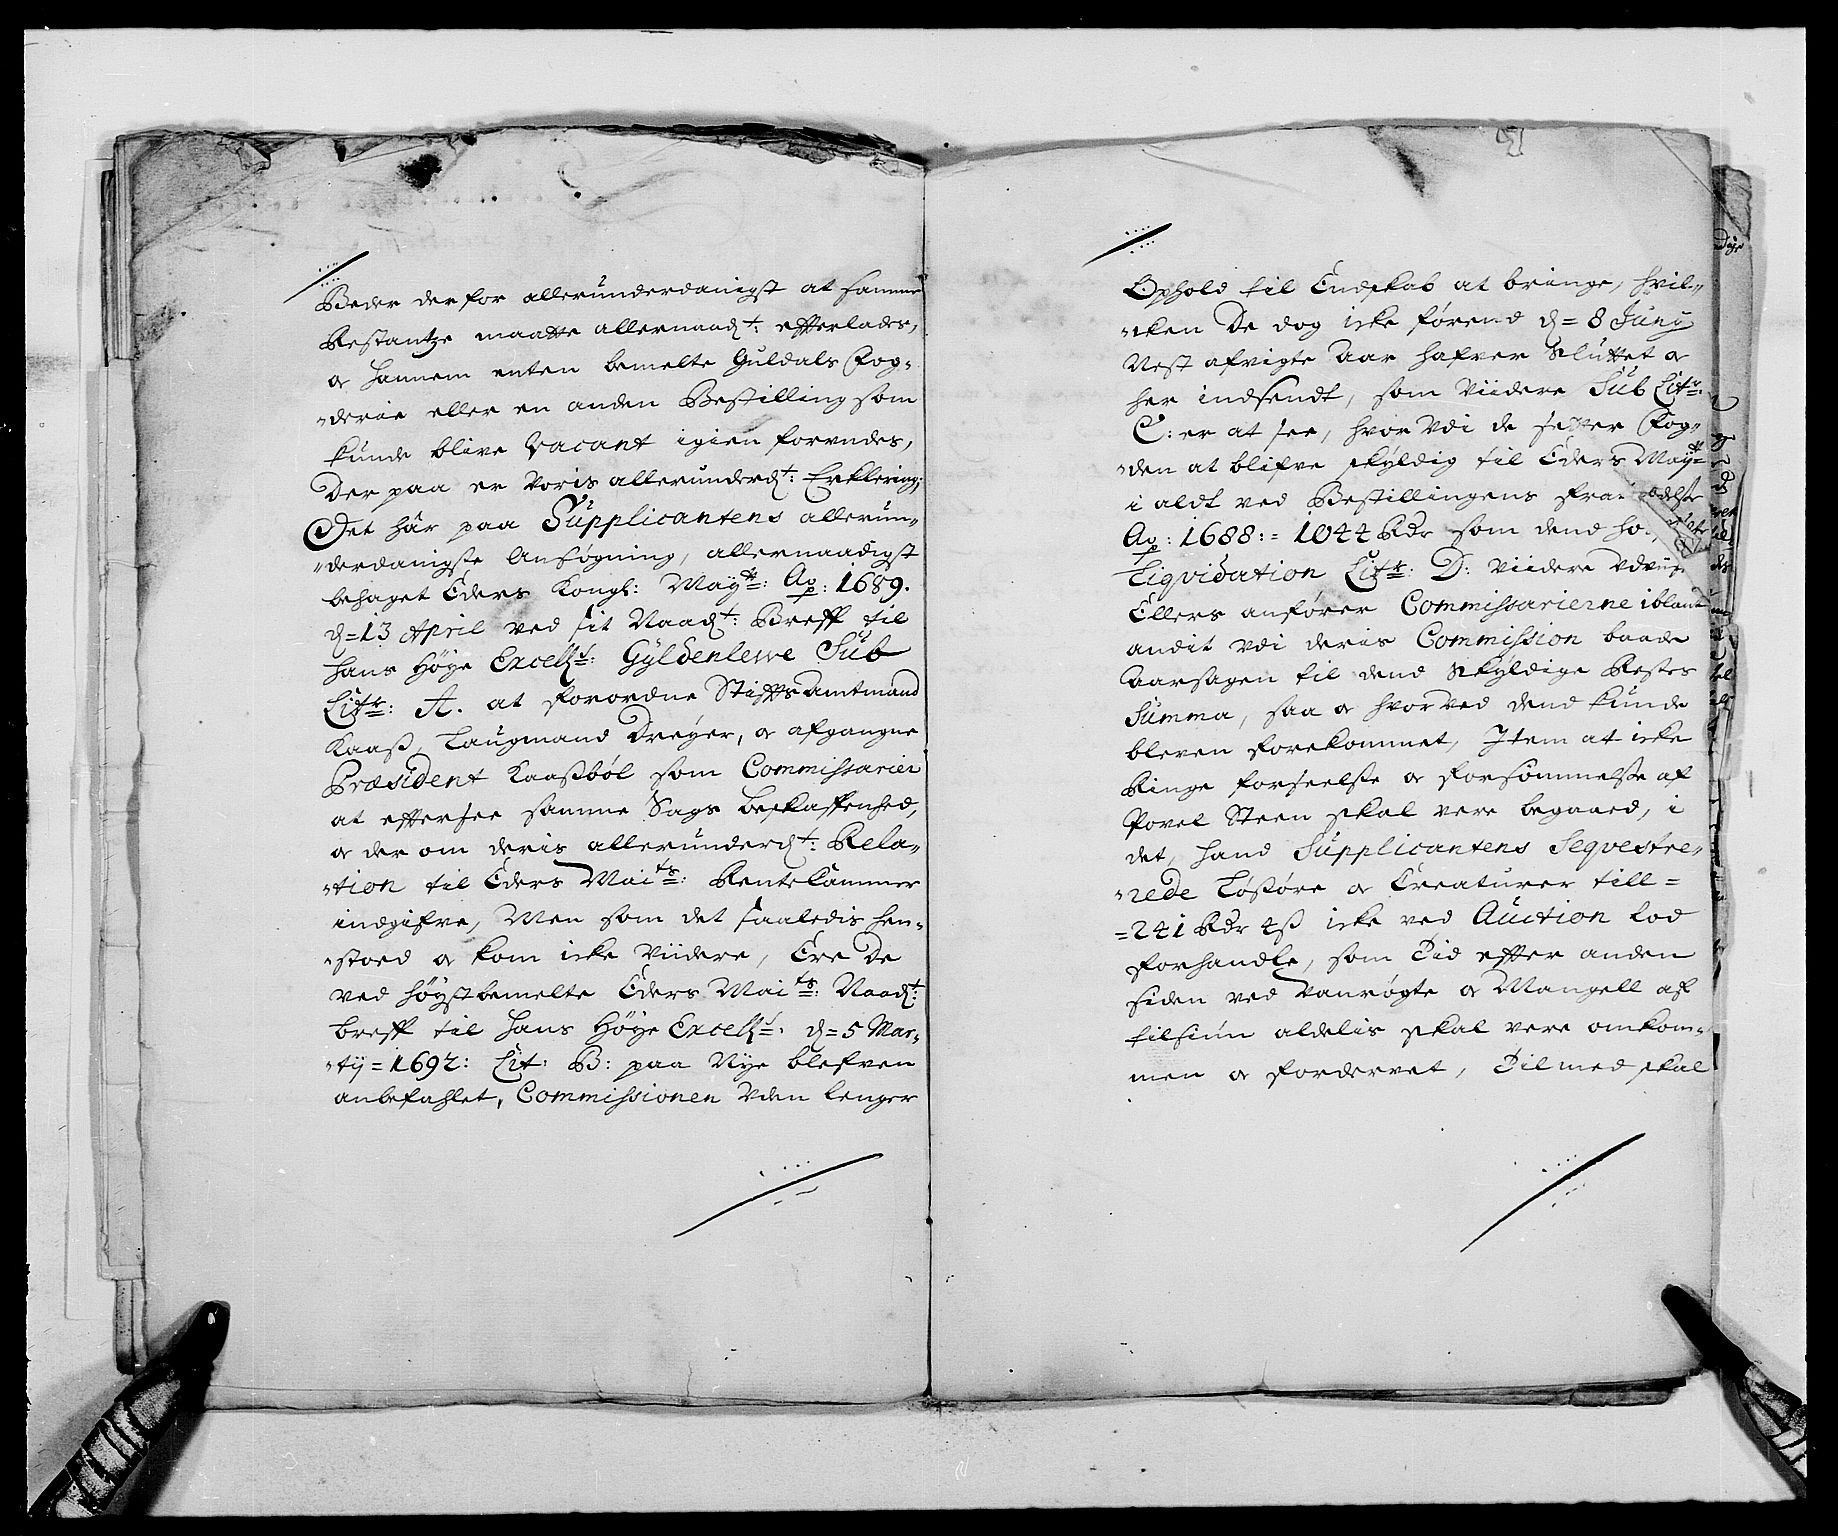 Beder derfor allerunderdanigst at samme
Restantze maatte allernaadt: efterlades,
og hannem enten bemelte Guldals Fog-
derie eller en anden Bestilling som
kunde blive Vacant igien forundes,
Der paa er Voris allerunderdt: Erklering;
Det hâr paa Supplicantens allerun-
derdanigste Ansøgning, allernaadigst
behaget Eders Kongl: Maytt: Ao: 1689.
d=13 April ved sit Naadt: Breff til
Hans Höye Excellt: Gyldenlewe Sub
Littr: A. at forordne Stiftsamtmand
Kaass, Laugmand Dreyer, og afgangne
Præsident Kaassböl som Commissarier
at effersee samme Sags beskaffenhed,
og der om deris allerunderdt: Rela-
tion til Eders Maits: Rentekammer
indgifve, Men som det saaledis hen-
stoed og kom icke Viidere, Ere De
ved höystbemelte Eders Maits: Naadt:
breff til Hans Höye Excellt: d=5 Mar-
tij=1692: Lit: B: paa Nye blefven
anbefahlet, Commissionen Uden lenger
Ophold til Endskab at bringe, hvil-
cken De dog icke førend d=8 Junij
Nest afvigte Aar hafver Sluttet og
her indsendt, som Viidere Sub Littr:
C: er at see, hvor Udi de setter Fog-
den at blifve skyldig til Eders Maytt
i aldt ved Bestillingens
Ao: 1688:= 1044 Rdr som dend
Liqvidation Littr: D: Viidere Udviiser
Ellers anfører Commissarierne iblant
andit Udi deris Commission baade
Aarsagen til dend Skyldige Restes
Summa, saa og hvorved dend kunde
bleven forekommet, Item at icke
Ringe forseelse og forsømmelse af
Povel Steen skal vere begaaed, i
det, hand Supplicantens Seqvestre-
rede Løssøre og Creaturer till=
=241 Rdr 4ß icke ved Auction lod
forhandle, som Tid effter anden
siden ved Vanrøgte og Mangell af
tilsiun aldelis skal vere omkom-
men og fordervet, Til med skal